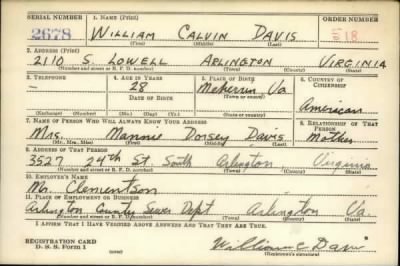 SERIAL NUMBER 1. NAME (Print) ORDER NUMBER
2678 WILLIAM CALVIN DAVIS 618
(First) (Middle) (Last)
2. ADDRESS (Print)
2110 S. LOWELL ARLINGTON VIRGINIA
(Number and street or R. F. D. number) (Town) (County) (State)
3. TELEPHONE 4. AGE IN YEARS 5. PLACE OF BIRTH 6. COUNTRY OF CITIZENSHIP
- 28 Meherrin Va
DATE OF BIRTH American
7. NAME OF PERSON WHO WILL ALWAYS KNOW YOUR ADDRESS 8. RELATIONSHIP OF THAT PERSON
Mrs. Mannie Dorsey Davis Mother
(Mr., Mrs., Miss) (First) (Middle) (Last)
9. ADDRESS OF THAT PERSON
3527 24th St. South Arlington Virginia
(Number and street or R. F. D. number) (Town) (County) (State)
10. EMPLOYER'S NAME
Mr. Clementson
11. PLACE OF EMPLOYMENT OR BUSINESS
Arlington County Sewer Dept Arlington Va.
(Number and street or R. F. D. number) (Town) (County) (State)
I AFFIRM THAT I HAVE VERIFIED ABOVE ANSWERS AND THAT THEY ARE TRUE.
REGISTRATION CARD
D. S. S. Form 1 William C Davis
(Registrant's signature)